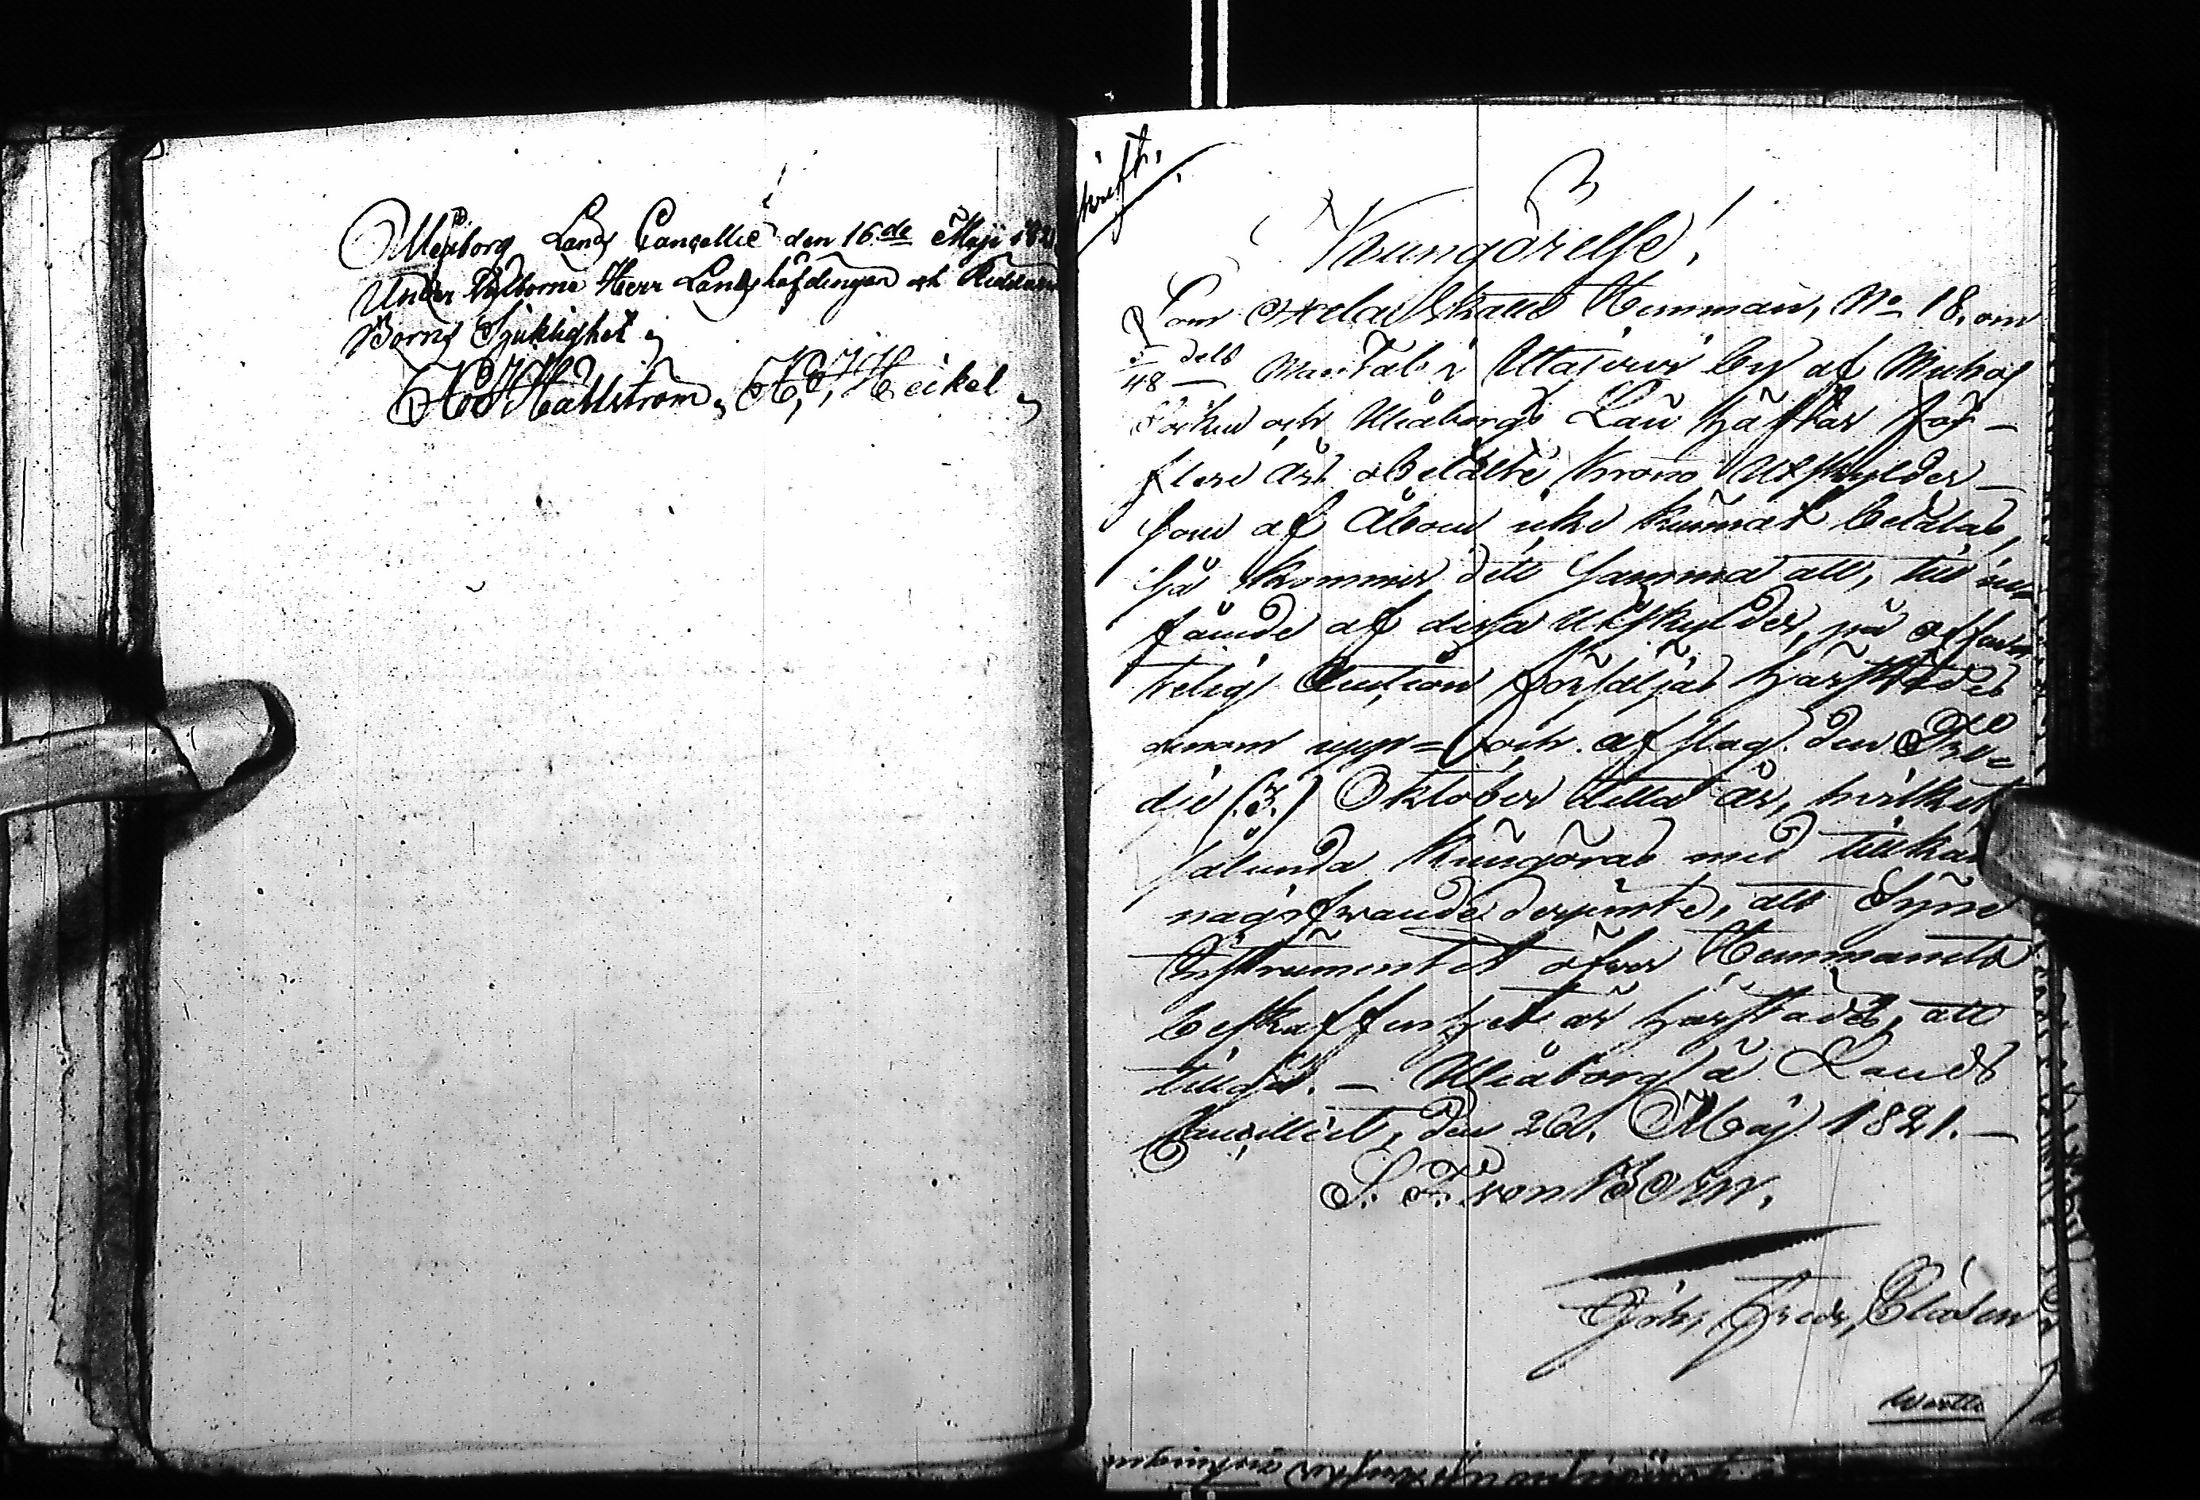 Uleåborg Lands Cancellie den 16de Maji 1821
Under Wälborne Herr Landshöfdingen och Riddaren
Borns Sjuklighet
Hällström, H. J. Heickel
Kungörelse!
Som Skatte Hemman, No 18, om
5/48 dels Mantal i Utajärvi by af Muhos
Socken och Uleåborgs Län häftar för
flere års obetalte Krono Utskylder
som af Åboen icke kunnat betalas,
så kommer dett samma att, till
fående af dessa Utskylder, på offent
telig Auction försäljas härstädes
genom upp= och afslag den Tre
dje (3.) Oktober detta år, hvilket
sålunda kungöras med tillkän
nagifvande derjämte, att Syne
Instrumentet öfver Hemmanets
beskaffenhet är härstädes, att
tillgå. — Uleåborg å Lands
Cancelliet, den 26. Maji 1821. —
S. F. von Born.
Joh. Fredr. Claasen